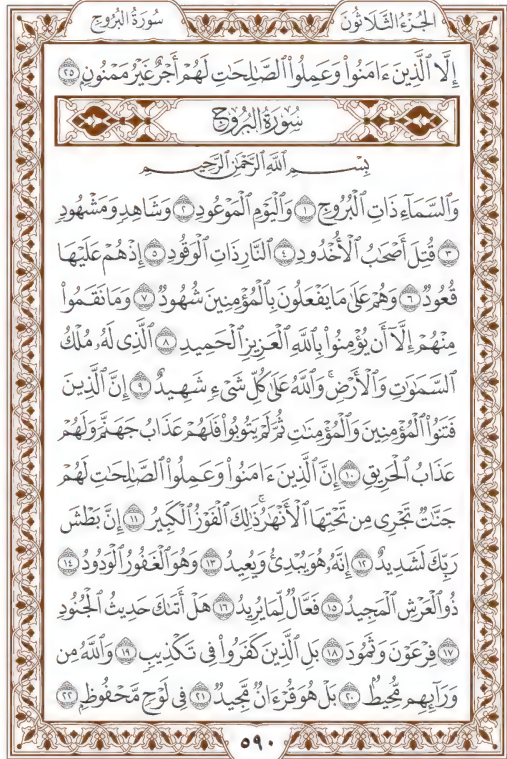 الجزء الثلاثون سورة البروج
إِلَّا ٱلَّذِينَ ءَامَنُوا۟ وَعَمِلُوا۟ ٱلصَّـٰلِحَـٰتِ لَهُمْ أَجْرٌ غَيْرُ مَمْنُونٍۭ ٢٥
سُورَةُ البُرُوجِ
بِسْمِ ٱللَّهِ ٱلرَّحْمَـٰنِ ٱلرَّحِيمِ
وَٱلسَّمَآءِ ذَاتِ ٱلْبُرُوجِ ١ وَٱلْيَوْمِ ٱلْمَوْعُودِ ٢ وَشَاهِدٍ وَمَشْهُودٍ
٣ قُتِلَ أَصْحَـٰبُ ٱلْأُخْدُودِ ٤ ٱلنَّارِ ذَاتِ ٱلْوَقُودِ ٥ إِذْ هُمْ عَلَيْهَا
قُعُودٌ ٦ وَهُمْ عَلَىٰ مَا يَفْعَلُونَ بِٱلْمُؤْمِنِينَ شُهُودٌ ٧ وَمَا نَقَمُوا۟
مِنْهُمْ إِلَّآ أَن يُؤْمِنُوا۟ بِٱللَّهِ ٱلْعَزِيزِ ٱلْحَمِيدِ ٨ ٱلَّذِى لَهُۥ مُلْكُ
ٱلسَّمَـٰوَٰتِ وَٱلْأَرْضِ ۚ وَٱللَّهُ عَلَىٰ كُلِّ شَىْءٍ شَهِيدٌ ٩ إِنَّ ٱلَّذِينَ
فَتَنُوا۟ ٱلْمُؤْمِنِينَ وَٱلْمُؤْمِنَـٰتِ ثُمَّ لَمْ يَتُوبُوا۟ فَلَهُمْ عَذَابُ جَهَنَّمَ وَلَهُمْ
عَذَابُ ٱلْحَرِيقِ ١٠ إِنَّ ٱلَّذِينَ ءَامَنُوا۟ وَعَمِلُوا۟ ٱلصَّـٰلِحَـٰتِ لَهُمْ
جَنَّـٰتٌ تَجْرِى مِن تَحْتِهَا ٱلْأَنْهَـٰرُ ۚ ذَٰلِكَ ٱلْفَوْزُ ٱلْكَبِيرُ ١١ إِنَّ بَطْشَ
رَبِّكَ لَشَدِيدٌ ١٢ إِنَّهُۥ هُوَ يُبْدِئُ وَيُعِيدُ ١٣ وَهُوَ ٱلْغَفُورُ ٱلْوَدُودُ ١٤
ذُو ٱلْعَرْشِ ٱلْمَجِيدُ ١٥ فَعَّالٌ لِّمَا يُرِيدُ ١٦ هَلْ أَتَىٰكَ حَدِيثُ ٱلْجُنُودِ
١٧ فِرْعَوْنَ وَثَمُودَ ١٨ بَلِ ٱلَّذِينَ كَفَرُوا۟ فِى تَكْذِيبٍ ١٩ وَٱللَّهُ مِن
وَرَآئِهِم مُّحِيطٌۢ ٢٠ بَلْ هُوَ قُرْءَانٌ مَّجِيدٌ ٢١ فِى لَوْحٍ مَّحْفُوظٍۭ ٢٢
٥٩٠